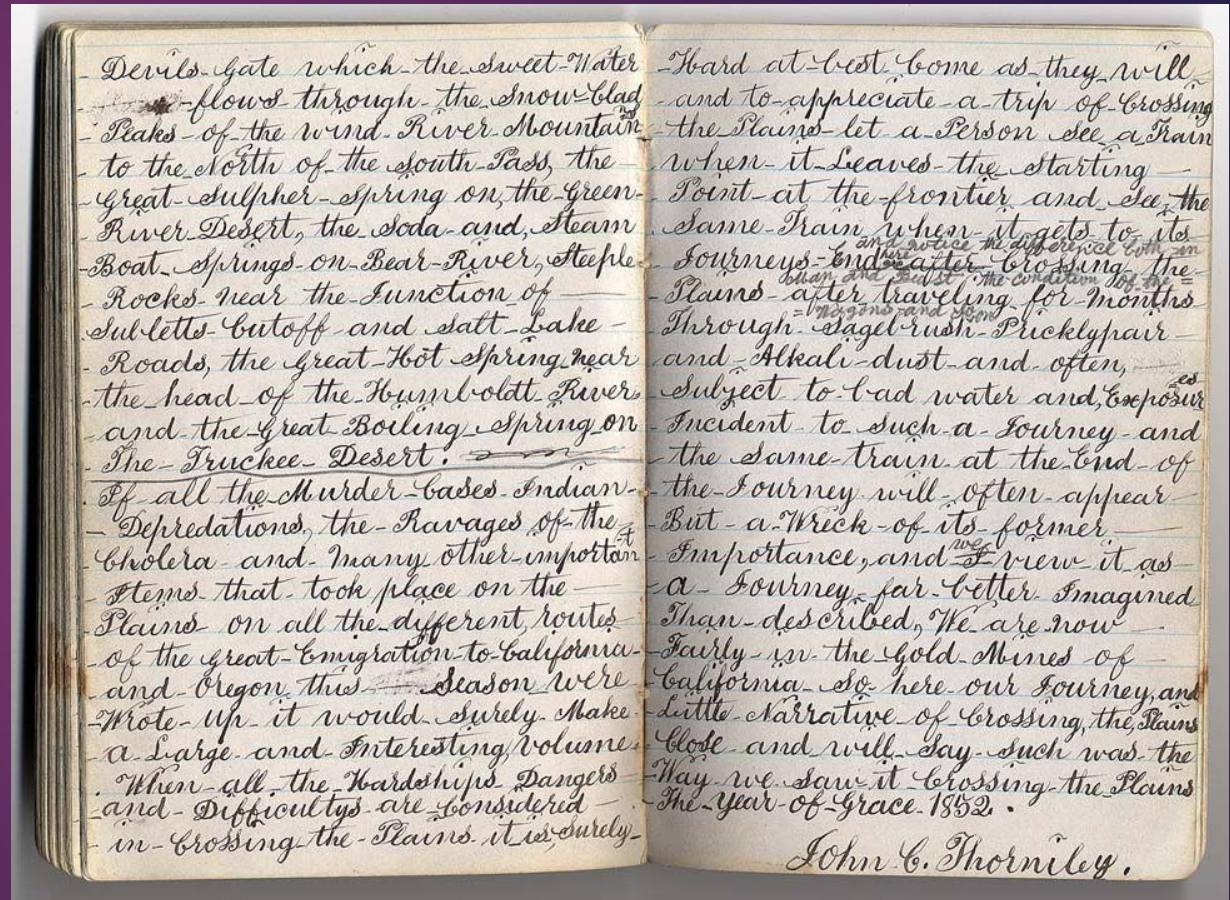 Devils-Gate which-the-Sweet-Water
-flows-through-the-Snow-Clad
Peaks-of-the Wind-River-Mountains
to the North of the South-Pass, the
Great-Sulpher-Spring on, the-Green-
River-Desert, the Soda-and, Steam
Boat-Springs-on-Bear-River, Steeple
Rocks-near the Junction of
Subletts-Cutoff and Salt-Lake-
Roads, the Great-Hot Spring near
the head-of the Humboldt River
and-the-Great Boiling-Spring on
The-Truckee-Desert.
If all the Murder-Cases-Indian-
Depredations, the-Ravages of-the
Cholera-and-many other-important
Items-that-took place on the
Plains-on all the different, routes
of the Great-Emigration-to-California-
and-Oregon, this Season were
Wrote-Up-it would-Surely-Make
a-Large-and-Interesting, Volume.
When-all, the-Hardships-Dangers
and-Difficultys are Considered
in-Crossing-the-Plains-it is, Surely-
Hard at-best Come as-they will
and to-appreciate-a-trip of-Crossing
the Plains-let a-Person see a Train
when-it-Leaves-the Starting
Point-at the-frontier and-see, the
Same-Train when-it gets-to its
and notice the difference both-in
Journeys-End here after-Crossing, the
Man and Beast the condition of the=
Plains-after traveling for-Months
=Wagons and
Through-Sagebrush-Pricklypair
and-Alkali-dust-and often,
Subject to-bad water and, Exposures
Incident-to-Such-a-Journey-and
the Same-train at the-End-of
the-Journey-will-often-appear
But-a-Wreck-of its-former
Importance, and we I view it-as
a-Journey-far-better-Imagined
Than-described, We are now
Fairly-in-the Gold-Mines of
California-So-here our Journey, and
Little-Narrative-of Crossing, the, Plains
Close-and will-Say-Such was-the
Way we Saw-it Crossing-the-Plains
The-Year-of-Grace-1852.
John C. Thorniley.